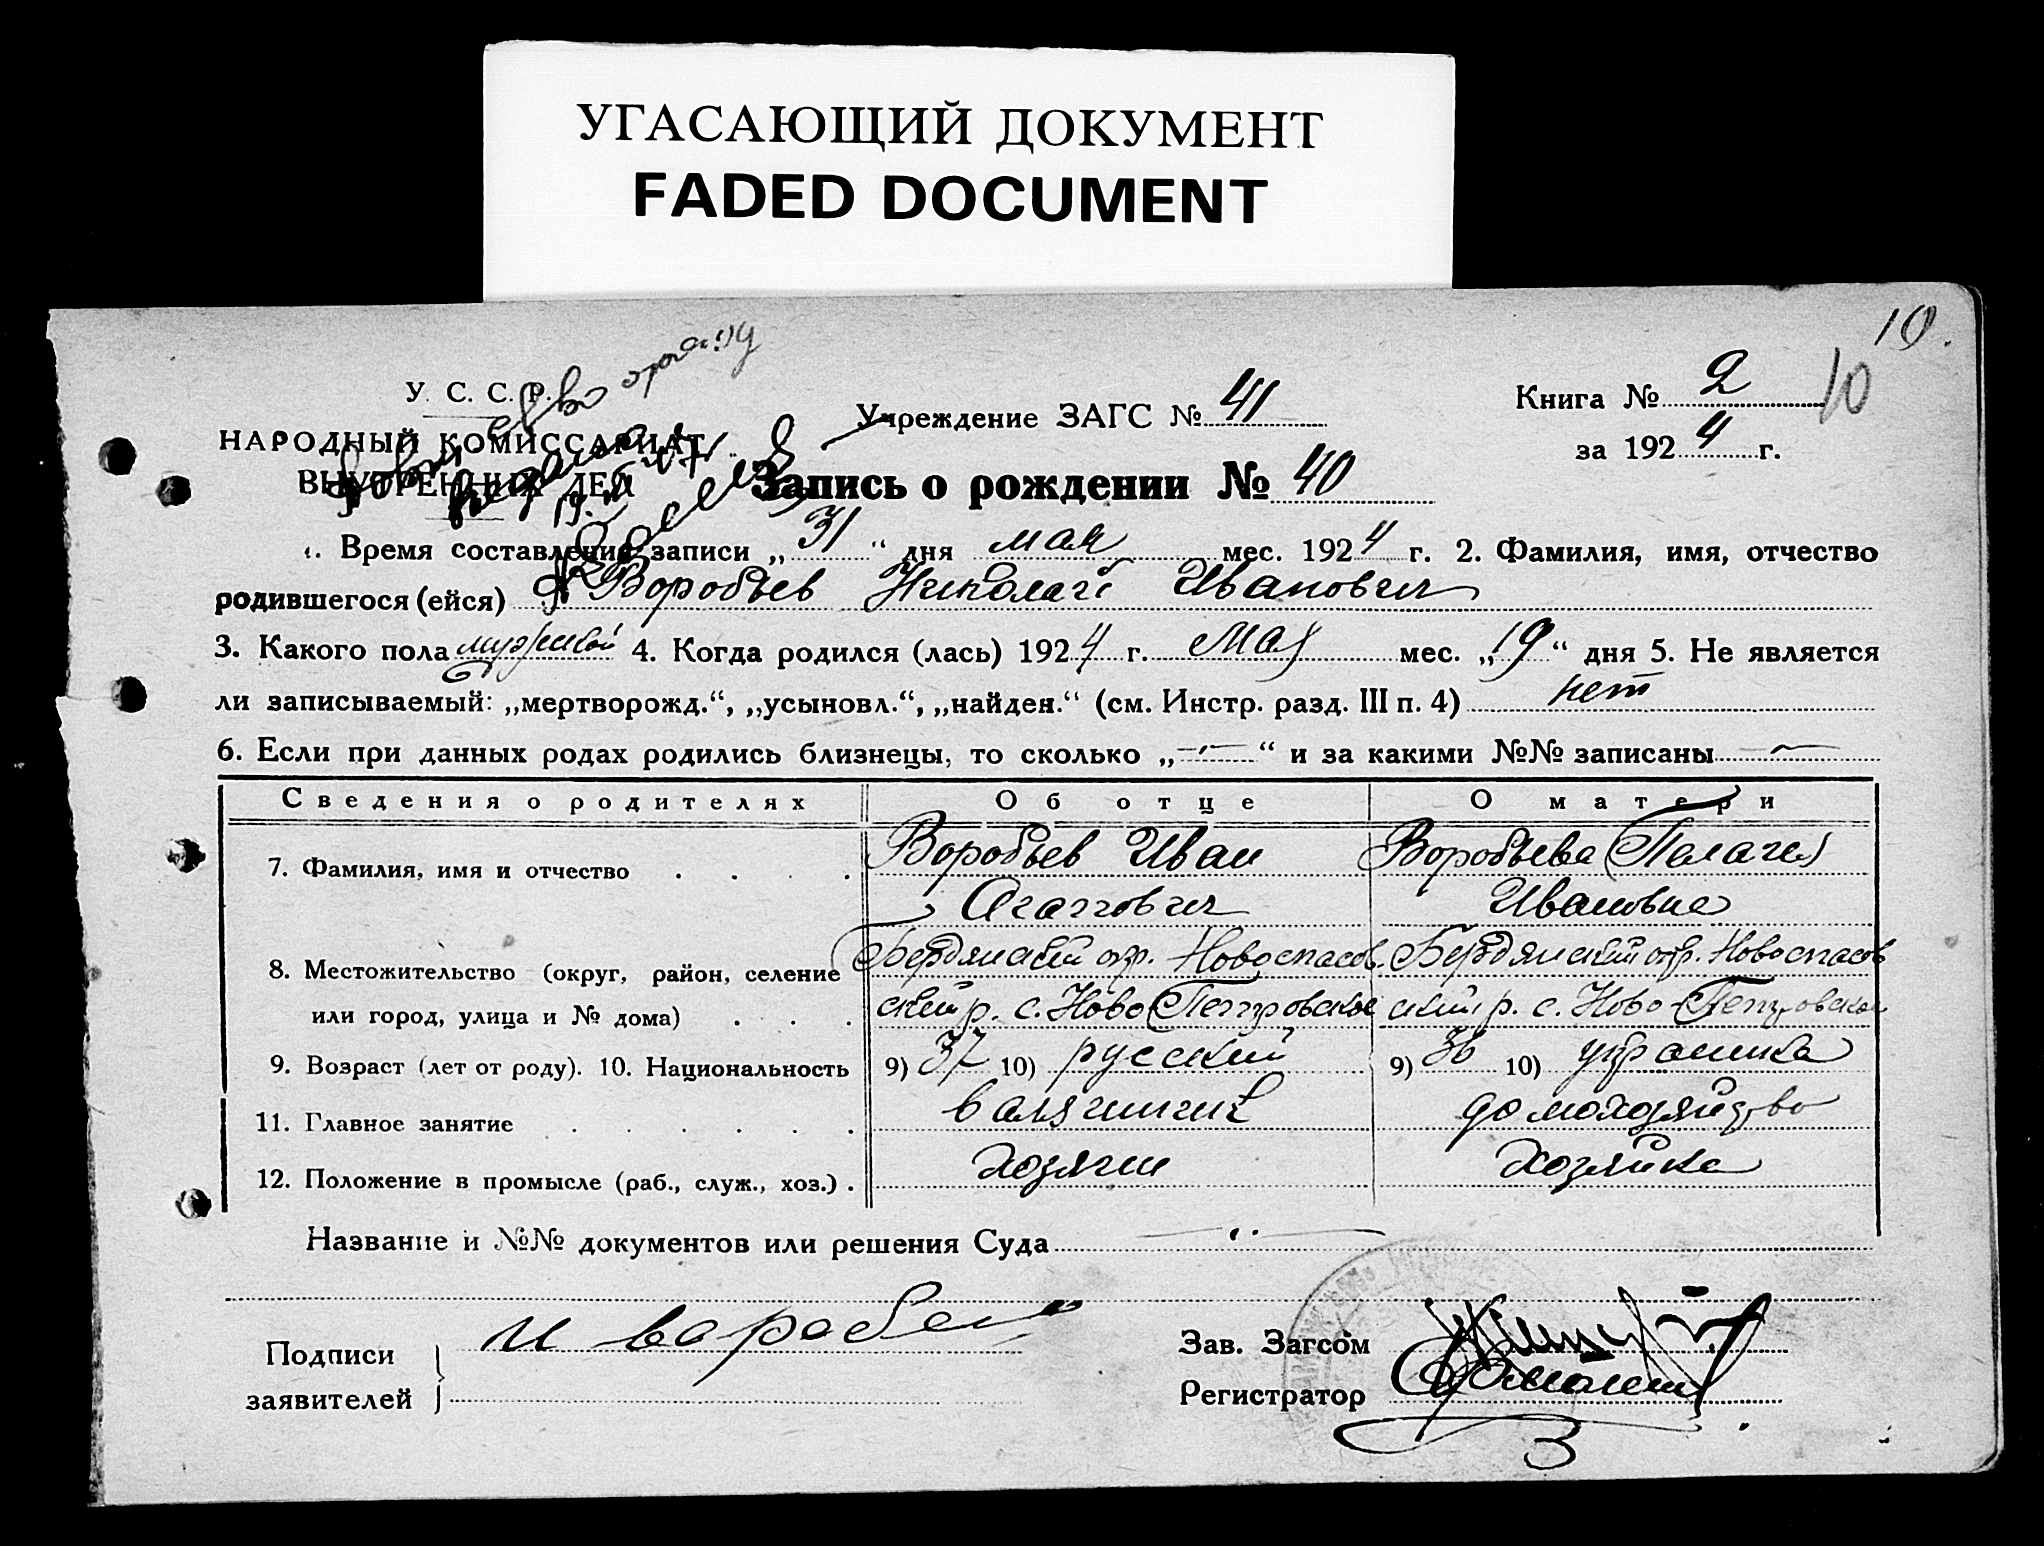 УГАСАЮЩИЙ ДОКУМЕНТ
FADED DOCUMENT
10.
10
У. С. С. Р.
НАРОДНЫЙ КОМИССАРИАТ
ВНУТРЕННИХ ДЕЛ
Учреждение ЗАГС № 41
Книга № 2
за 1924 г.
Запись о рождении № 40
1. Время составления записи „31“ дня мая мес. 1924 г. 2. Фамилия, имя, отчество
родившегося (ейся) Воробьев Николай Иванович
3. Какого пола мужской 4. Когда родился (лась) 1924 г. Мая мес. „19“ дня 5. Не является
ли записываемый: „мертворожд.“, „усыновл.“, „найден.“ (см. Инстр. разд. III п. 4) нет
6. Если при данных родах родились близнецы, то сколько „—“ и за какими №№ записаны —
Сведения о родителях Об отце О матери
7. Фамилия, имя и отчество . . . . Воробьев Иван Воробьева Пелагея
Агапович Ивановна
8. Местожительство (округ, район, селение Бердянский окр. Новоспасов Бердянский окр. Новоспасов
или город, улица и № дома) . . . ский р. с. Ново Петровское ский р. с. Ново-Петровское
9. Возраст (лет от роду). 10. Национальность 9) 37 10) русский 9) 36 10) украинка
11. Главное занятие . . . . . . домохозяйство
12. Положение в промысле (раб., служ., хоз.) . хозяин хозяйка
Название и №№ документов или решения Суда
Подписи
заявителей
И
Зав. Загсом
Регистратор
3